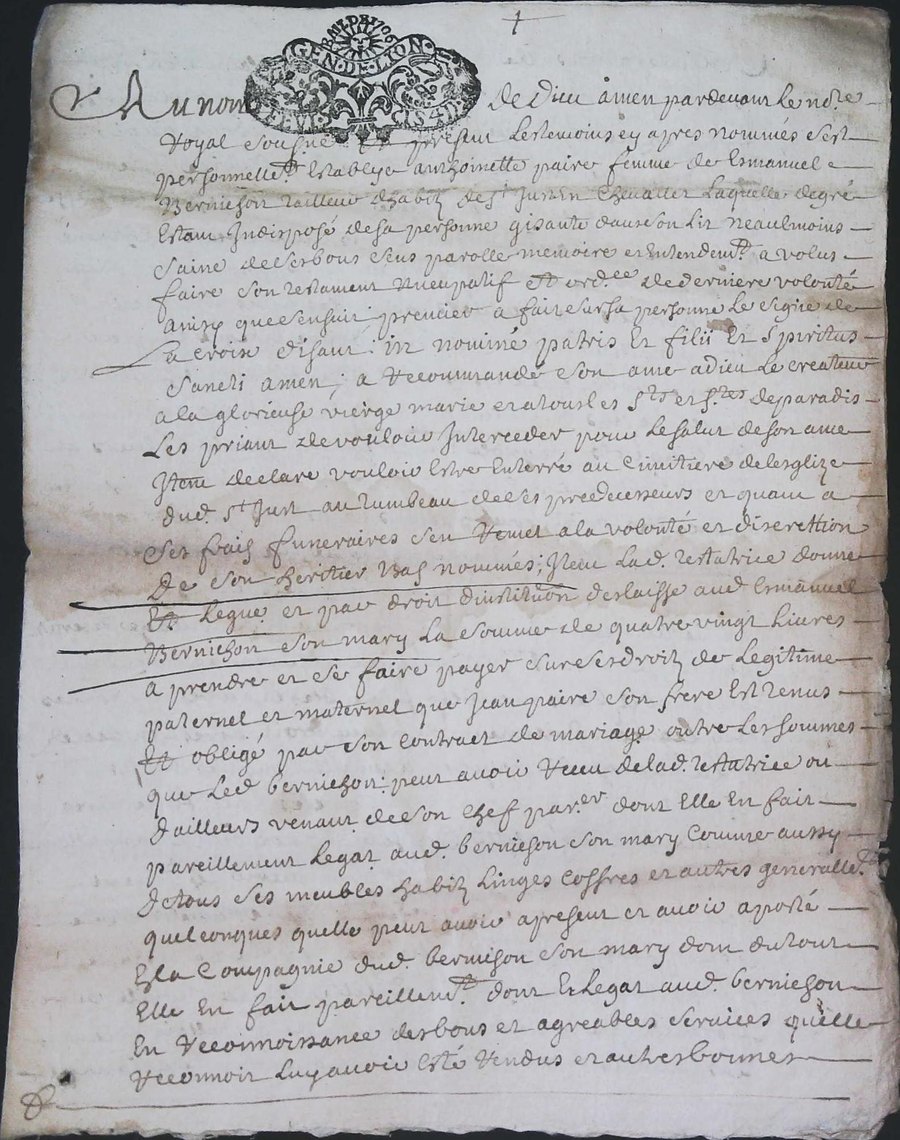 BAIL DE 1706
GEN · DE · LION ·
Au nom de Dieu amen pardevant le nore
Royal sousigné et present les temoins cy apres nommés s'est
personnellet establye anthoinette paire femme de Emanuel
Bernichon tailleur dhabitz de st Justin Chevallet laquelle de gré
Estant Indisposé de sa personne gisante dans son lit neaulmoins
saine de ses bons sens parolle memoire et Entendemt a volus
faire son testament Nuncupatif et ordee de derniere volonté
ainsy que sensuit premier a fait sur sa personne le signe de
La croix disant : in nominé patris Et filii Et spiritus
sancti amen ; a recommandé son ame a dieu le createur
a la glorieuse vierge marie et a tous les sts et stes de paradis
Les priant de vouloir Interceder pour le salut de son ame
Item declare vouloir Estre Enterré au Cimitiere de lesglize
dud. st Just au tumbeau de ses predecesseurs et quant a
ses frais funeraires sen remet a la volonté et discrettion
De son heritier bas nommés ; Item lad. testatrice donne
Et Legue et par droit dinstitution deslaisse aud Emanuel
Bernichon son mary la somme de quatre vingt livres
a prendre et se faire payer sur ses droitz de legitime
paternel et maternel que Jean paire son frere Est tenus
Et obligé par son contract de mariage outre les sommes
que led bernichon peut avoir receu de lad. testatrice ou
dailleurs venant de son chef dont Elle En fait
pareillement legat aud. bernichon son mary Comme aussy
de tous ses meubles habitz linges coffres et autres generallet
quelconques quelle peut avoir apresent et avoir aporté
En la Compagnie dud. bernichon son mary dont du tout
Elle En fait pareillemt dont Et legat aud. bernichon
En reconnoissance des bons et agreables services quelle
reconnoit luy avoir Esté rendus et autres bonnes